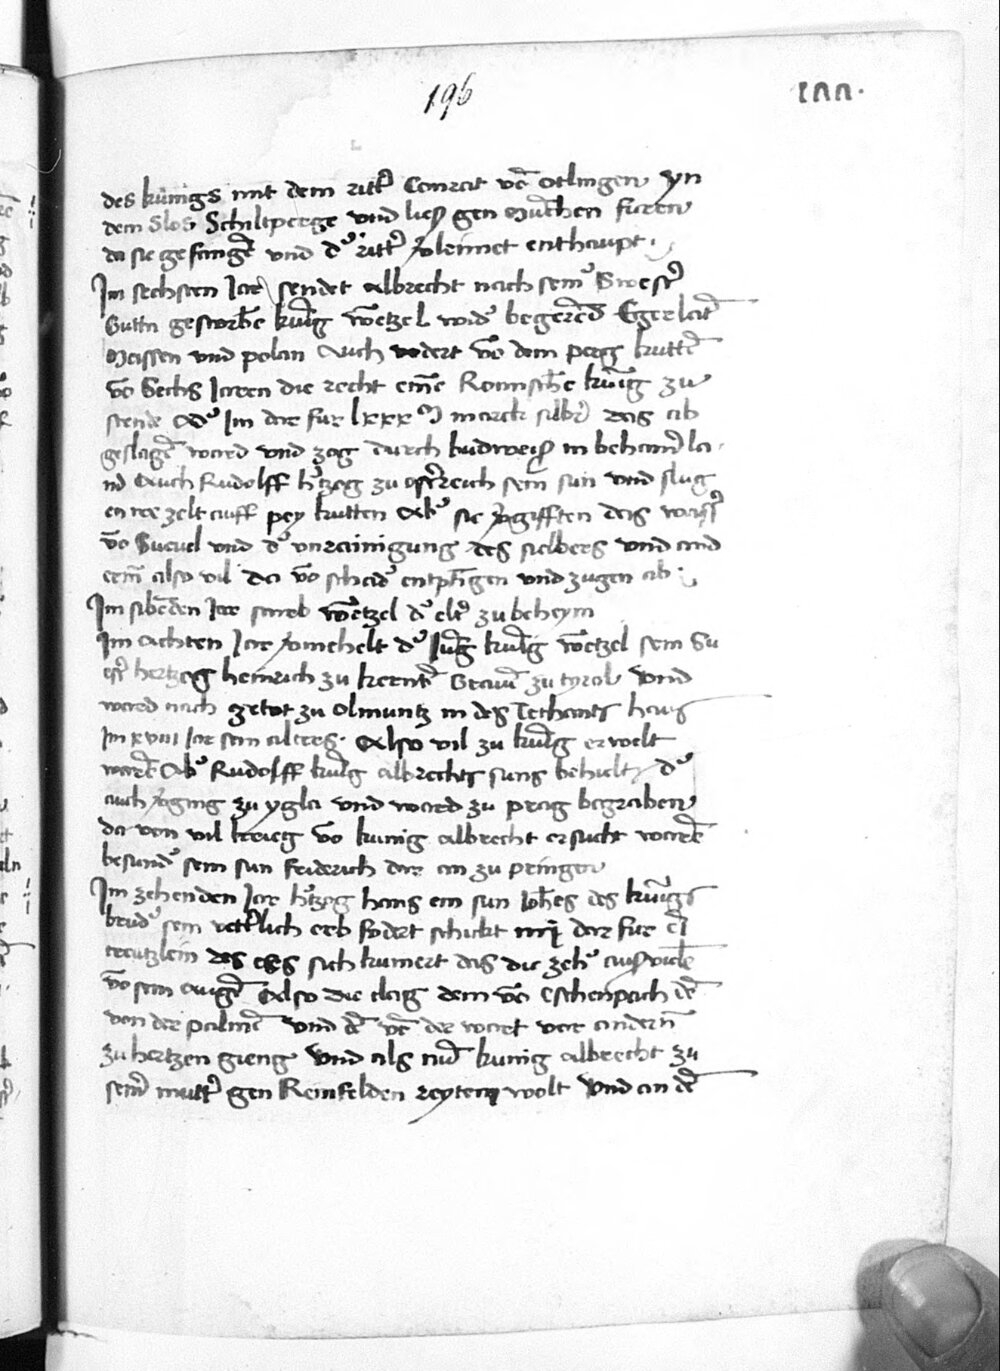 196
des kůnigs mit dem ritt' Conrat vō otlingen yn
dem Slos Schiltperge vnd lies gen Mūchen furen
da sie gefangē vnd d' ritt' enthaupt.
Im sechsten Jare sendet Albrecht nach sein' Swest'
Gutta gestorbē kunig wentzel wid' begerend Egerlant
Meissen vnd polan Auch vodert vō dem perg kuttē
vō Sechs Jaren die recht eine Romische kunig zu
stende od' Im dar fur lxxx M marck silb' das ab
geslagē ward vnd zog durch budweis in behamer la
nd Auch Rudolff h'tzog zu ost'reich sein sun vnd slug
en ire zelt auff pey kutten Ab' sie das
vō vnd d' vnrainigung des silbers vnd and
erm also vil da vō schad' entpfiengen vnd zugen ab.
Im sibēden Jar starb wentzel d' elt' zu beheym
Im Achten Jar v'mehelt d' Jung kunig wentzel sein Sw
est' hertzog heinrich zu kernt' Graue zu tyrol vnd
ward nach getot zu Olmuntz in des Techants haus
Im xviii Jar sein alters. Also vil zu kunig erwelt
ward Ab' Rudolff kunig albrechts suns behielt d'
auch v'ging zu ygla vnd ward zu prag begraben
da von vil krieg vō kunig albrecht ersucht ward
besund' sein sun friderich dar an zu pringen
Im zehenden Jare h'tzog hans ein sun des kunigs
brud' sein vett'lich erb fodert schickt dar fur
krentzlein des sich kumert das die zeh'
vō sein Augē Also die clag dem vō Eschenpach
von der palmē vnd dē vō der wart vor andern
zu hertzen gieng Vnd als nu kunig albrecht zu
sein' mutt' gen Reinfelden reyten wolt Vnd an dē